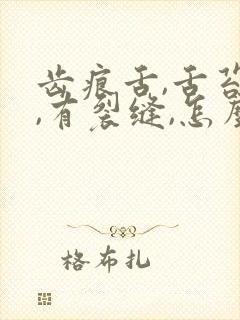 齿痕舌,舌苔
,有裂缝,怎
格布扎